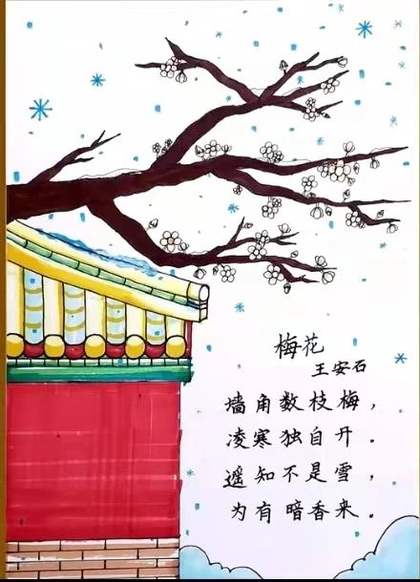 梅花
王安石
墙角数枝梅，
凌寒独自开．
遥知不是雪，
为有暗香来．